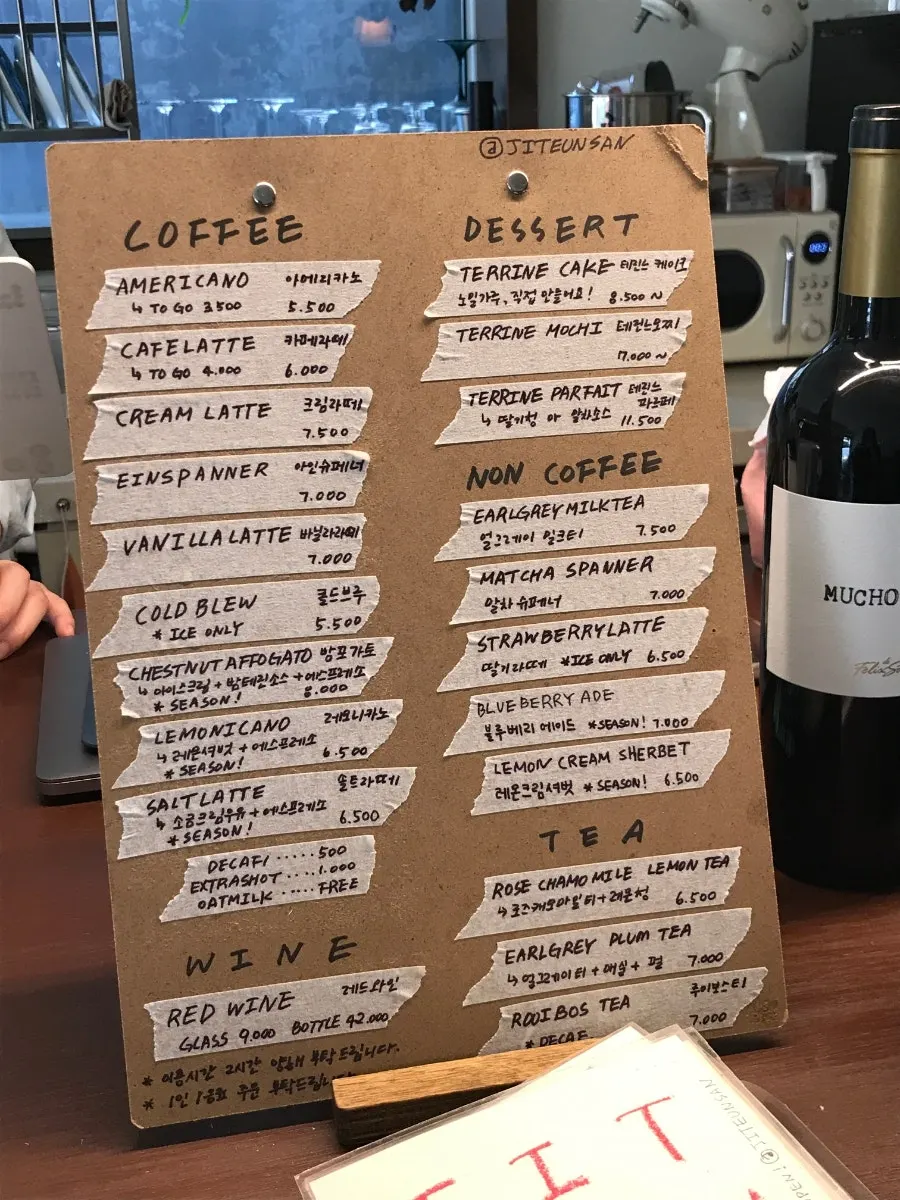 @JITEUNSAN
COFFEE
AMERICANO 아메리카노
↳ TO GO 3500 5.500
CAFELATTE 카페라떼
↳ TO GO 4.000 6.000
CREAM LATTE 크림라떼
7.500
EINSPANNER 아인슈페너
7.000
VANILLA LATTE 바닐라라떼
7.000
COLD BLEW 콜드브루
* ICE ONLY 5.500
CHESTNUT AFFOGATO 밤포가토
↳ 아이스크림 + 밤테린소스 + 에스프레소
* SEASON! 8.000
LEMONICANO 레모니카노
↳ 레몬셔벗 + 에스프레소
* SEASON! 6.500
SALT LATTE 솔트라떼
↳ 소금크림우유 + 에스프레소
* SEASON! 6.500
DECAFI ····· 500
EXTRASHOT ···· 1.000
OATMILK ····· FREE
WINE
RED WINE 레드와인
GLASS 9.000 BOTTLE 42.000
* 이용시간 2시간 양해 부탁드립니다.
* 1인 1음료 주문 부탁드립니
DESSERT
TERRINE CAKE 테린느 케이크
노밀가루, 직접 만들어요! 8.500 ~
TERRINE MOCHI 테린느모찌
7.000 ~
TERRINE PARFAIT 테린느
파르페
↳ 딸기청 or 말차소스 11.500
NON COFFEE
EARLGREY MILKTEA
얼그레이 밀크티 7.500
MATCHA SPANNER
말차 슈페너 7.000
STRAWBERRY LATTE
딸기라떼 *ICE ONLY 6.500
BLUEBERRY ADE
블루베리 에이드 *SEASON! 7.000
LEMON CREAM SHERBET
레몬크림셔벗 * SEASON! 6.500
TEA
ROSE CHAMOMILE LEMON TEA
↳ 로즈캐모마일티 + 레몬청 6.500
EARLGREY PLUM TEA
↳ 얼그레이티 + 매실 + 펄 7.000
ROOIBOS TEA 루이보스티
* DECAF 7.000
MUCHO
@JITEUNSAN